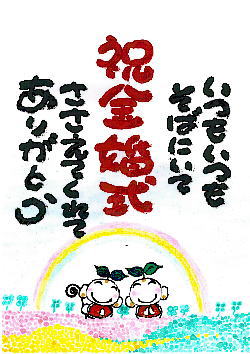 いつもいつも
そばにいて
祝金婚式
ささえてくれて
ありがとう